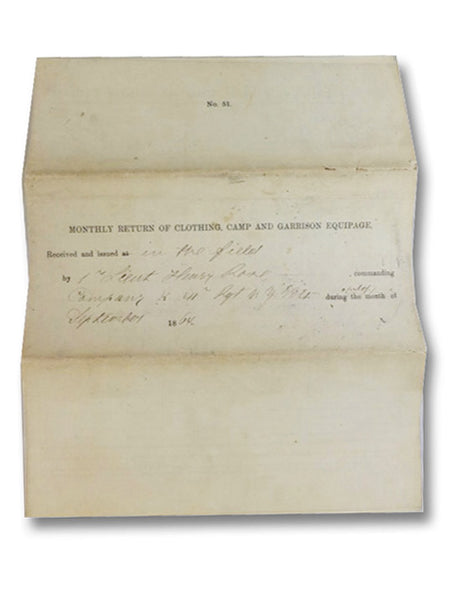 No. 51.
MONTHLY RETURN OF CLOTHING, CAMP AND GARRISON EQUIPAGE,
Received and issued at in the field
by 1st Lieut Henry , commanding
Company K Rgt N.Y. Vols during the month of
September 1864